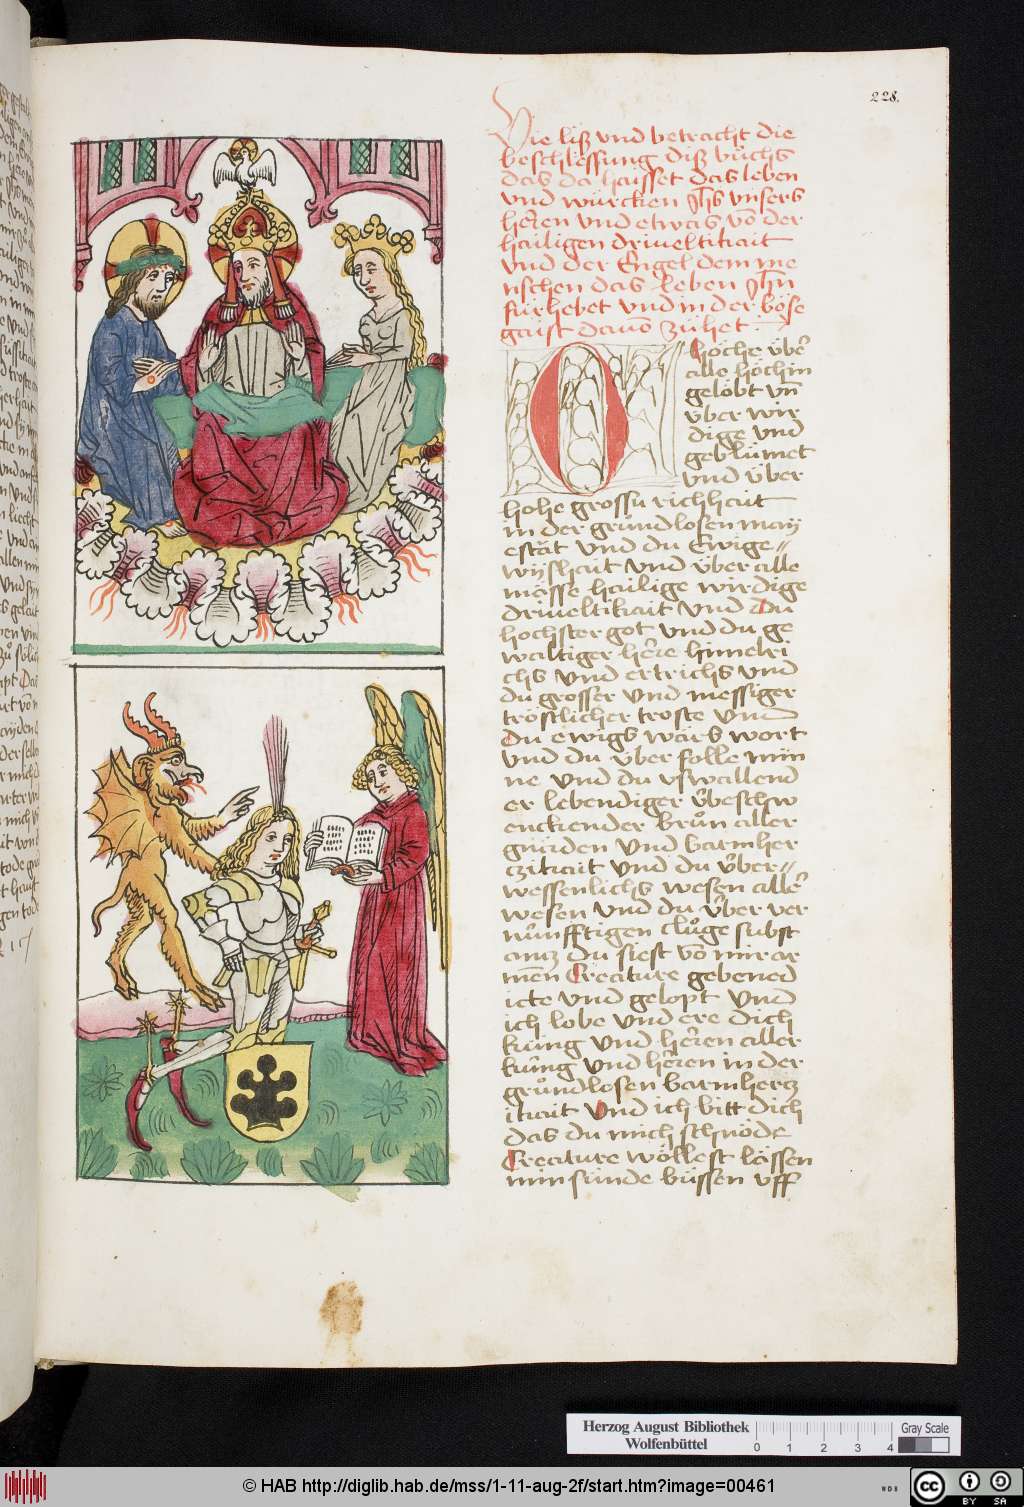 228.
Hie liß vnd betracht die
beschliessung diß bůchs
das da haisset das leben
vnd würcken Jhs vnsers
heren vnd etwas vō der
hailigen driueltikait
vnd der Engel dem me
nschen das leben Jhn
fürhebet vnd in der böse
gaist dauō zühet
O hoche über
alle höchin
gelobt vn̄
über wir
dige vnd
geblümet
vnd über
hohe grossu richhait
in der grundlosen may
estät vnd du Ewige
wyßhait vnd über alle
mässe hailige wirdige
driueltikait vnd du
hochster got vnd du ge
waltiger here himelri
chs vnd ertrichs vnd
du grosser vnd messiger
tröstlicher troste vnd
du ewigs wars wort
vnd du über folle myn
ne vnd du vswallend
er lebendiger übeschw
enckender brun aller
gnaden vnd barmher
czikait vnd du über
wessenlichs wesen aller
wesen vnd du über ver
nunfftigen cluge subst
antz du siest vō mir ar
men Creature gebened
icte vnd gelopt vnd
ich lobe vnd ere dich
kung vnd heren aller
kung vnd heren in der
grundlosen barmhercz
ikait vnd ich bitt dich
das du mich schnöde
Creature wöllest lässen
min sünde büssen vff
Herzog August Bibliothek
Wolfenbüttel
0 1 2 3 4
Gray Scale
© HAB http://diglib.hab.de/mss/1-11-aug-2f/start.htm?image=00461
cc BY SA